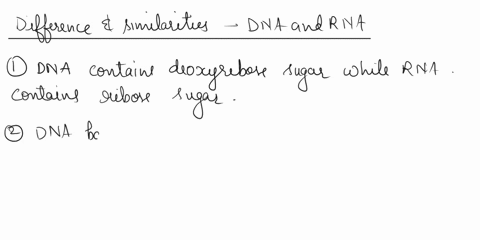 Difference & similarities - DNA and RNA
① DNA contains deoxyribose sugar while RNA.
contains ribose sugar.
② DNA